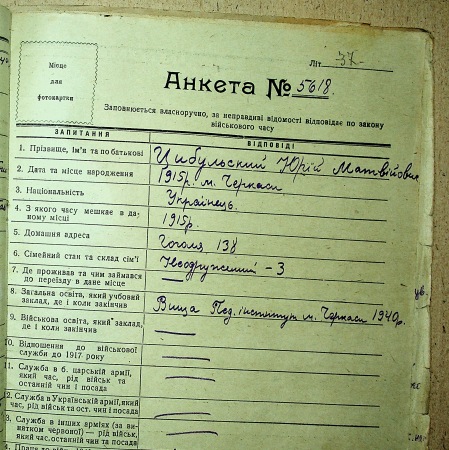 Місце
для
фотокартки
Літ. 37-
Анкета № 5618.
Заповнюється власноручно, за неправдиві відомості відповідає по закону
військового часу
ЗАПИТАННЯ ВІДПОВІДІ
1. Прізвище, ім'я та по батькові Цибульский Юрій Матвійович
2. Дата та місце народження 1915р. м. Черкаси
3. Національність Українець.
4. З якого часу мешкає в да-
ному місці 1915р.
5. Домашня адреса Гоголя 138
6. Сімейний стан та склад сім'ї Неодружений – 3
7. Де проживав та чим займався
до переїзду в дане місце —
8. Загальна освіта, який учбовий
заклад, де і коли закінчив Вища Пед. інститут м. Черкаси 1940р.
9. Військова освіта, який заклад,
де і коли закінчив —
10. Відношення до військової
служби до 1917 року —
11. Служба в б. царській армії,
який час, рід військ та
останній чин і посада —
2. Служба в Українській армії, який
час, рід військ та ост. чин і посада —
3. Служба в інших арміях (за ви-
нятком червоної) — рід військ,
який час, останній чин та посада —